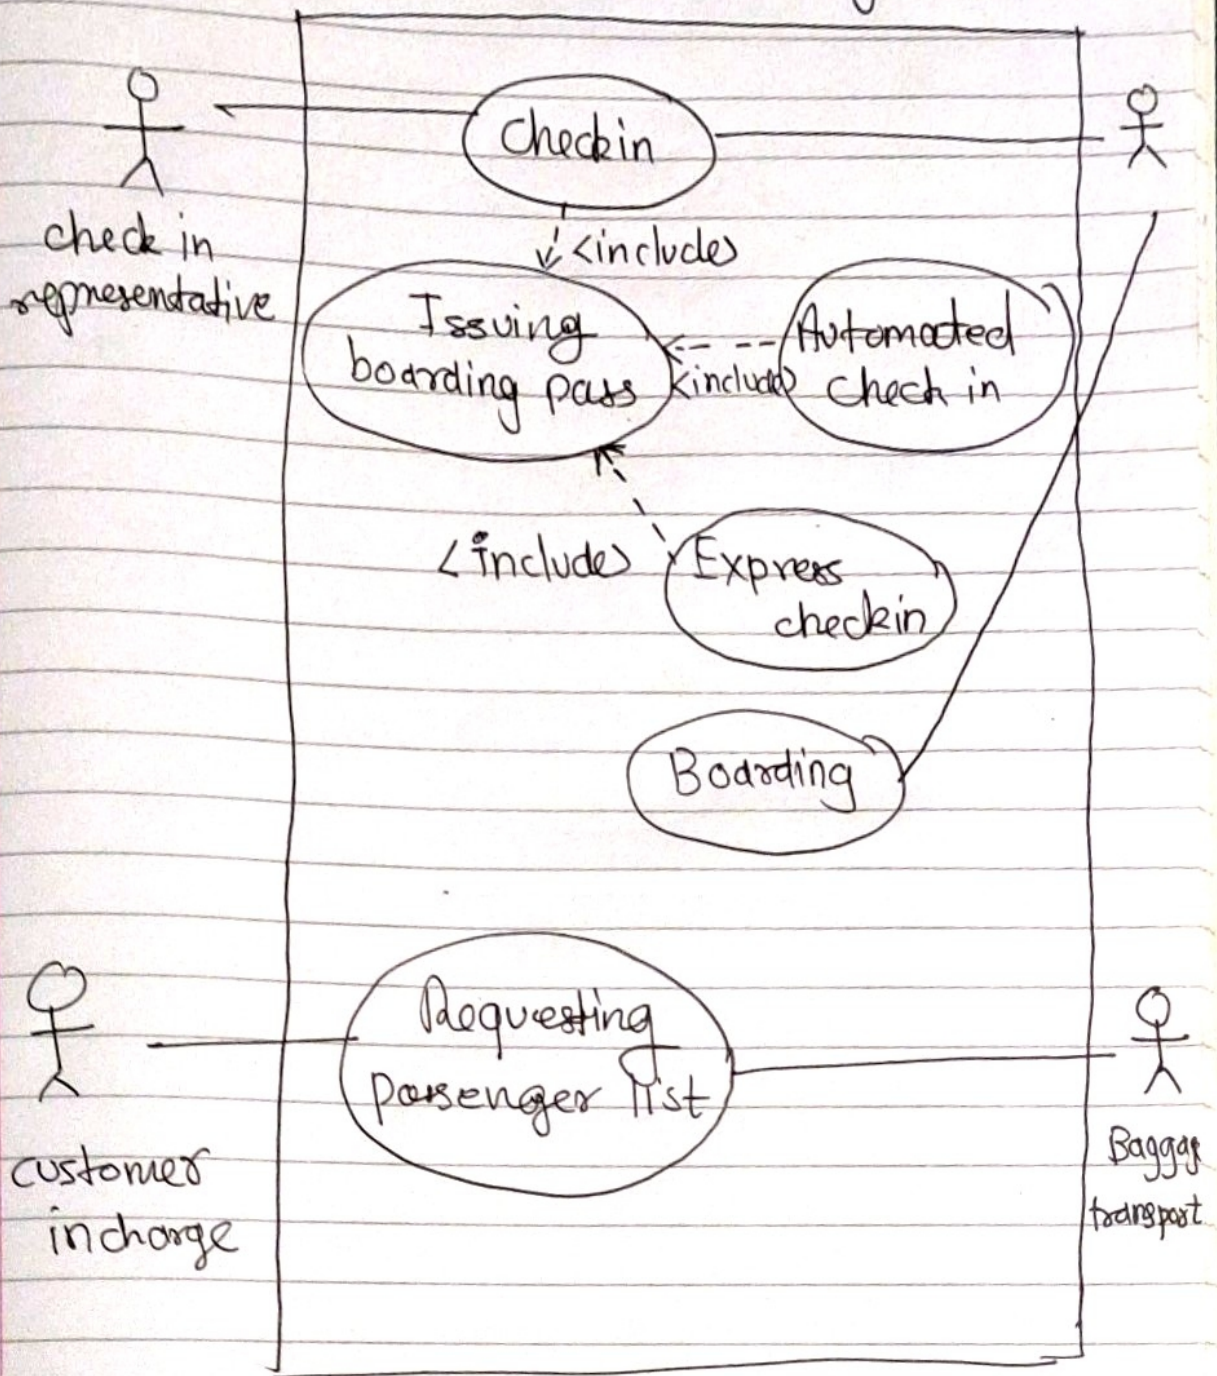 Checkin
check in
representative
<include>
Issuing
boarding pass
<include>
Automated
check in
<include>
Express
checkin
Boarding
Requesting
passenger list
customer
incharge
Baggage
transport